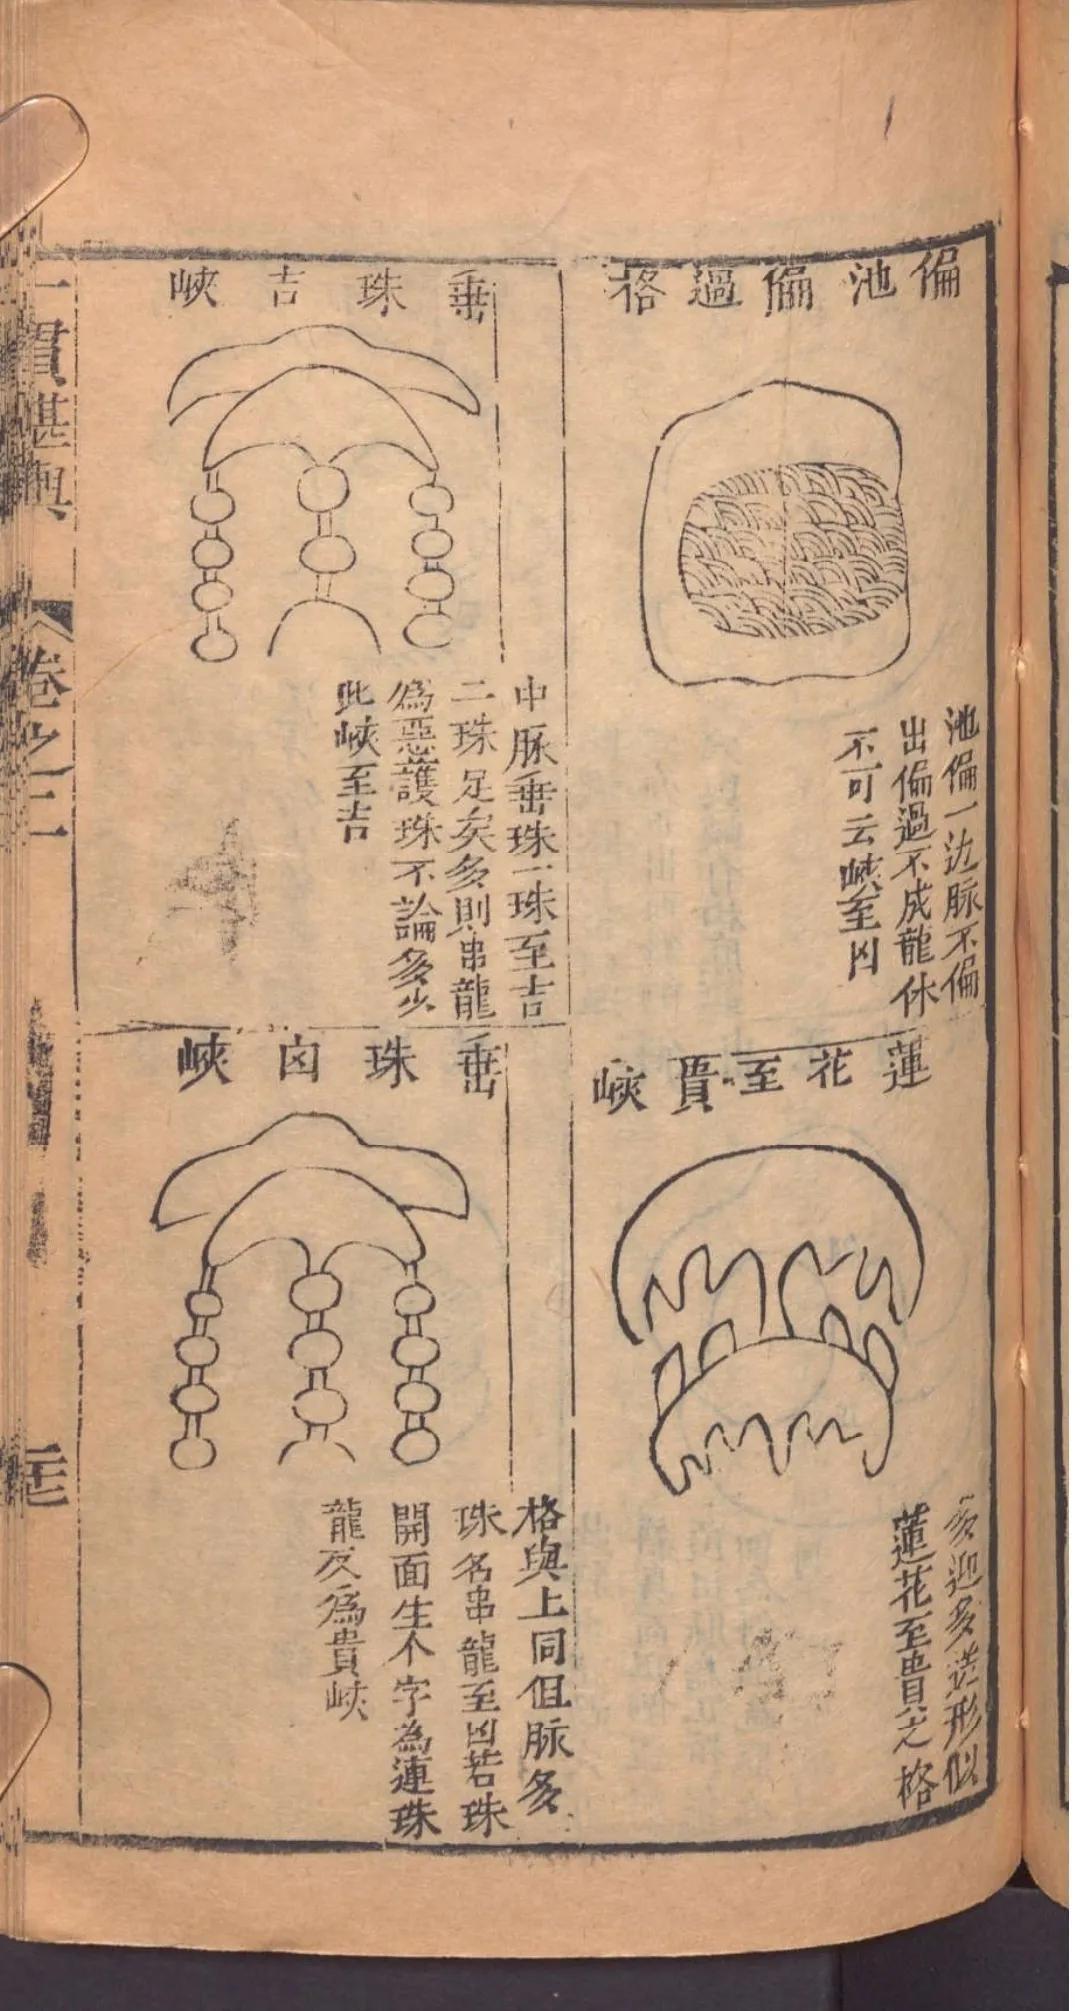 偏池偏過格
池偏一边脉不偏
出偏過不成龍休
不可云峽至凶
蓮花至貴峽
多迎多送形似
蓮花至貴之格
垂珠吉峽
中脉垂珠一珠至吉
二珠足矣多則串龍
為惡護珠不論多少
此峽至吉
垂珠凶峽
格與上同但脉多
珠名串龍至凶若珠
開面生个字為連珠
龍反爲貴峽
一貫堪輿
卷之二